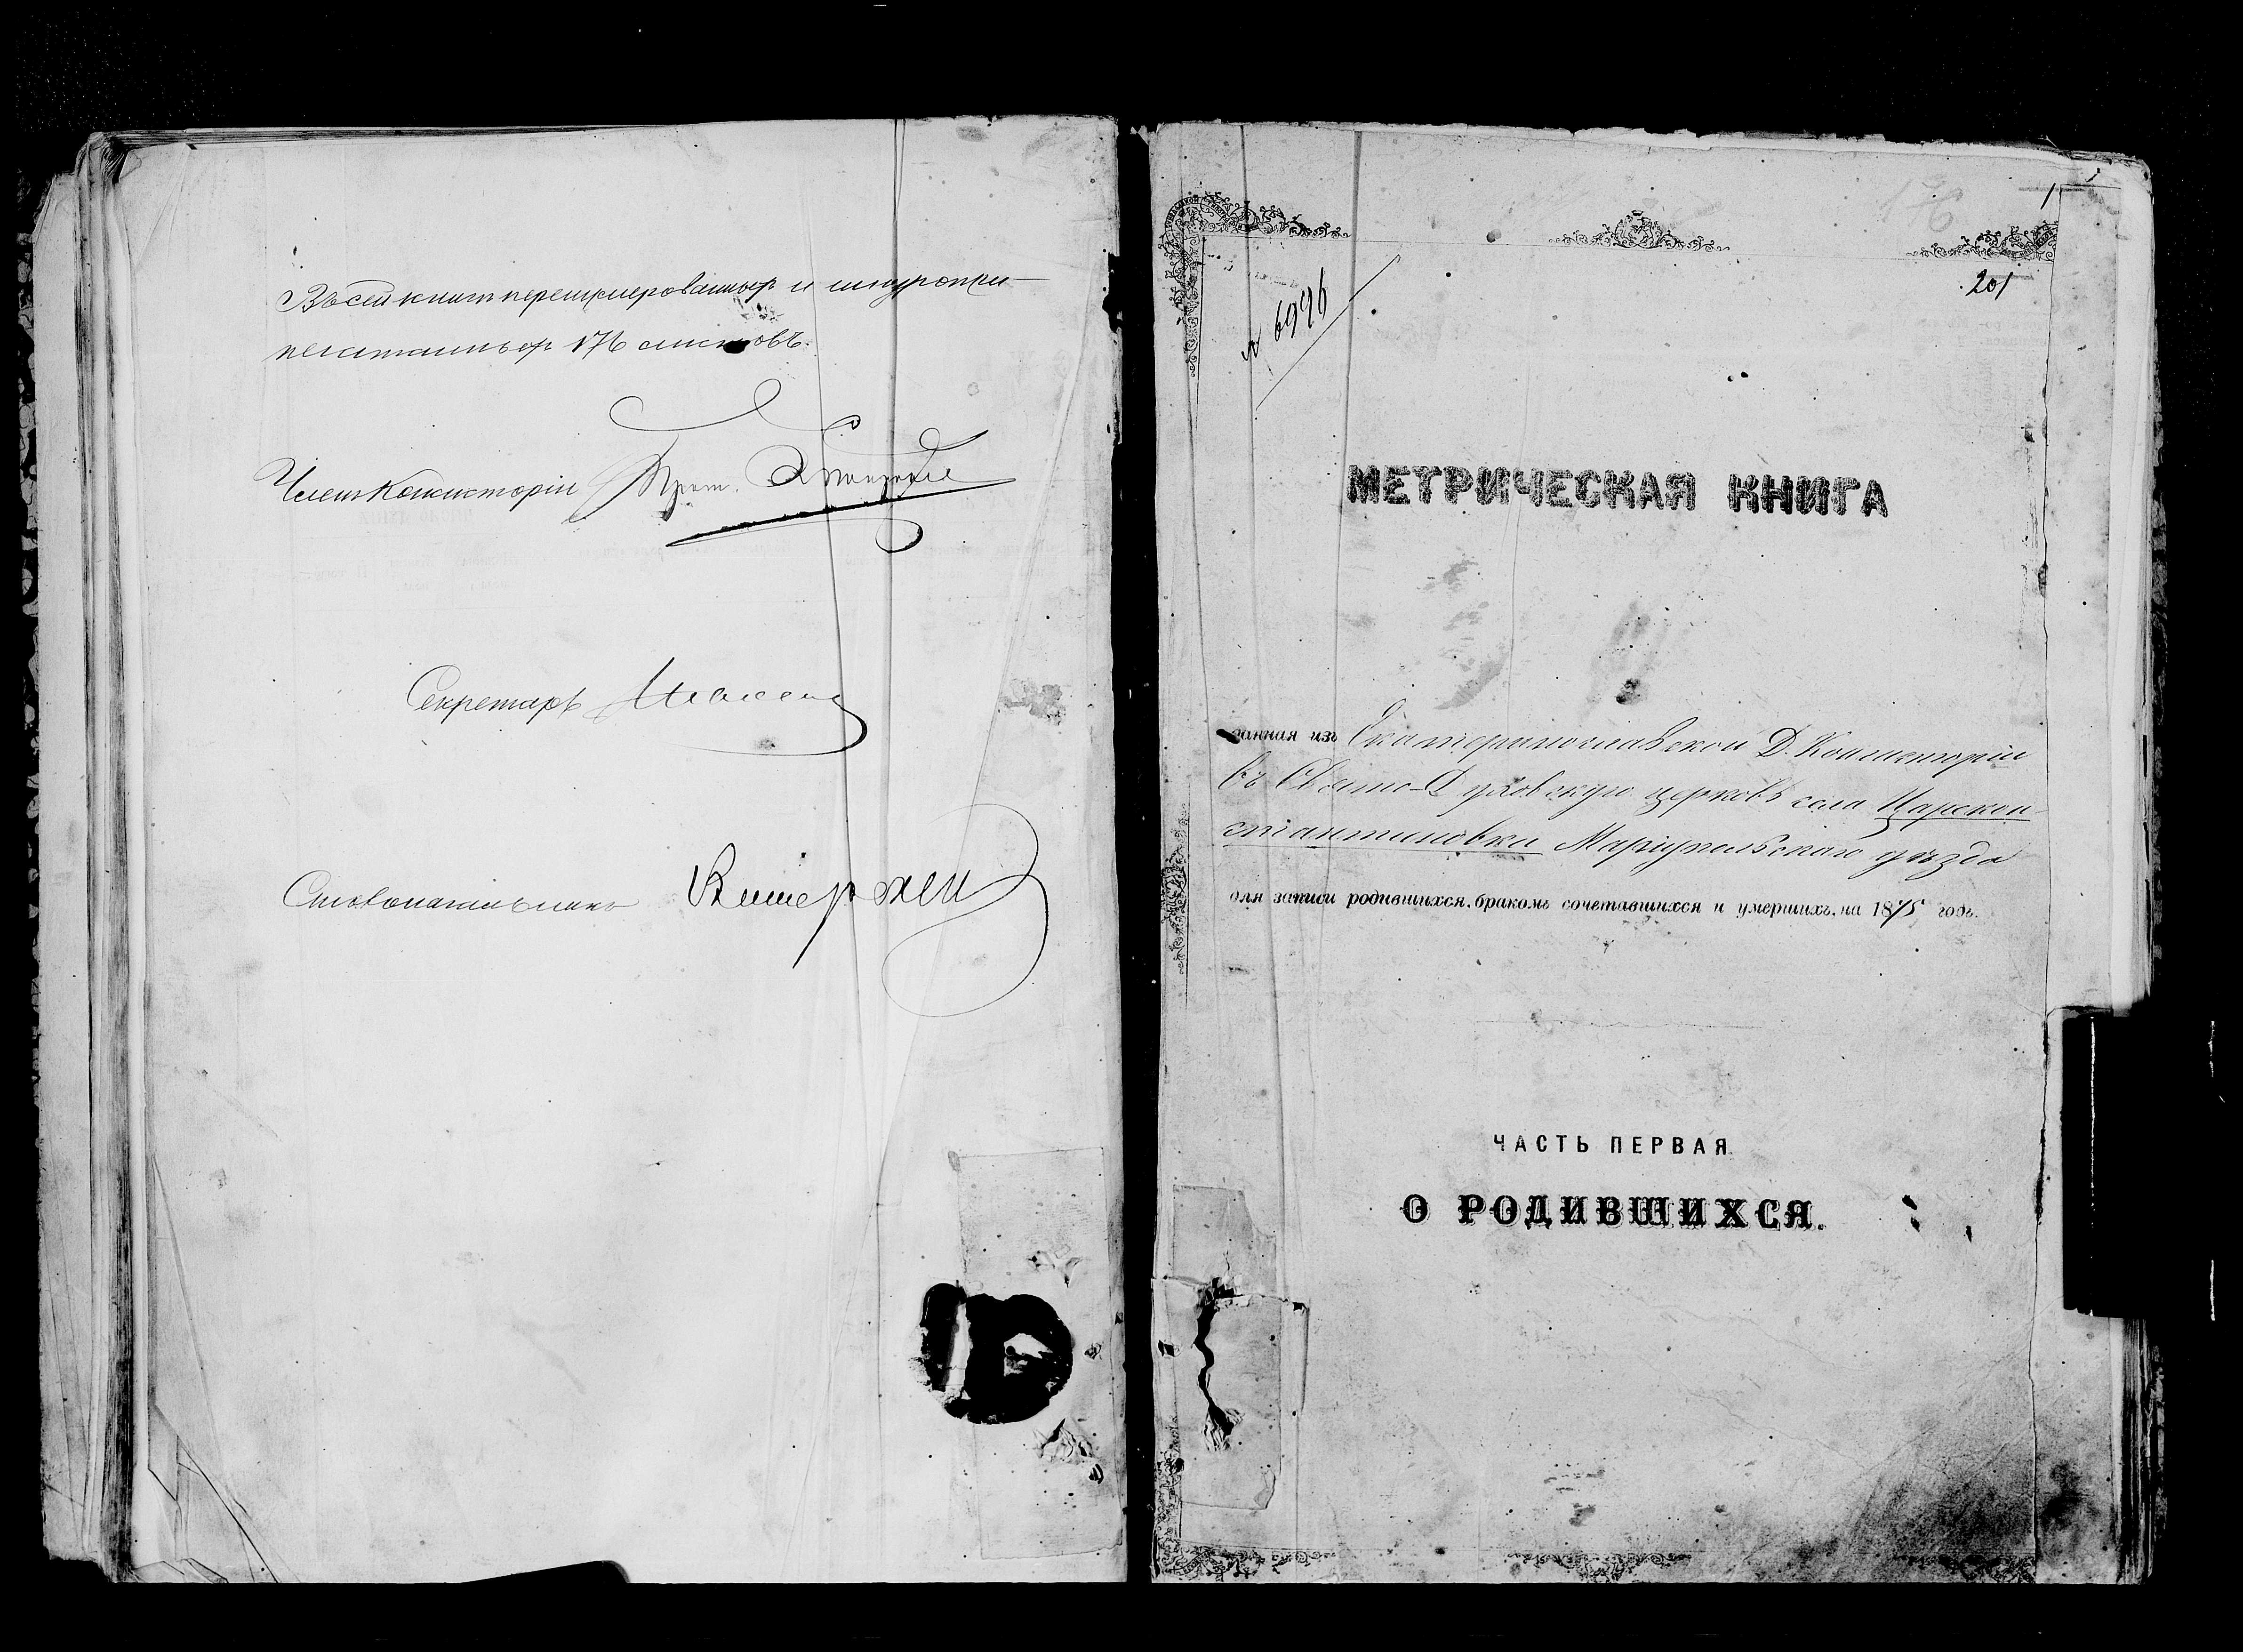 Въ сей книгѣ перенумерованныхъ и шнуропри-
печатанныхъ 176 листовъ.
Членъ Консисторіи Прот.
Секретарь
Столоначальникъ
1
201
№ 6996
МЕТРИЧЕСКАЯ КНИГА
данная изъ Екатеринославской Д. Консисторіи
въ Свято-Духовскую церковь села Царекон-
стантиновки Маріупольскаго уѣзда
для записи родившихся, бракомъ сочетавшихся и умершихъ, на 1875 годъ.
ЧАСТЬ ПЕРВАЯ
О РОДИВШИХСЯ.